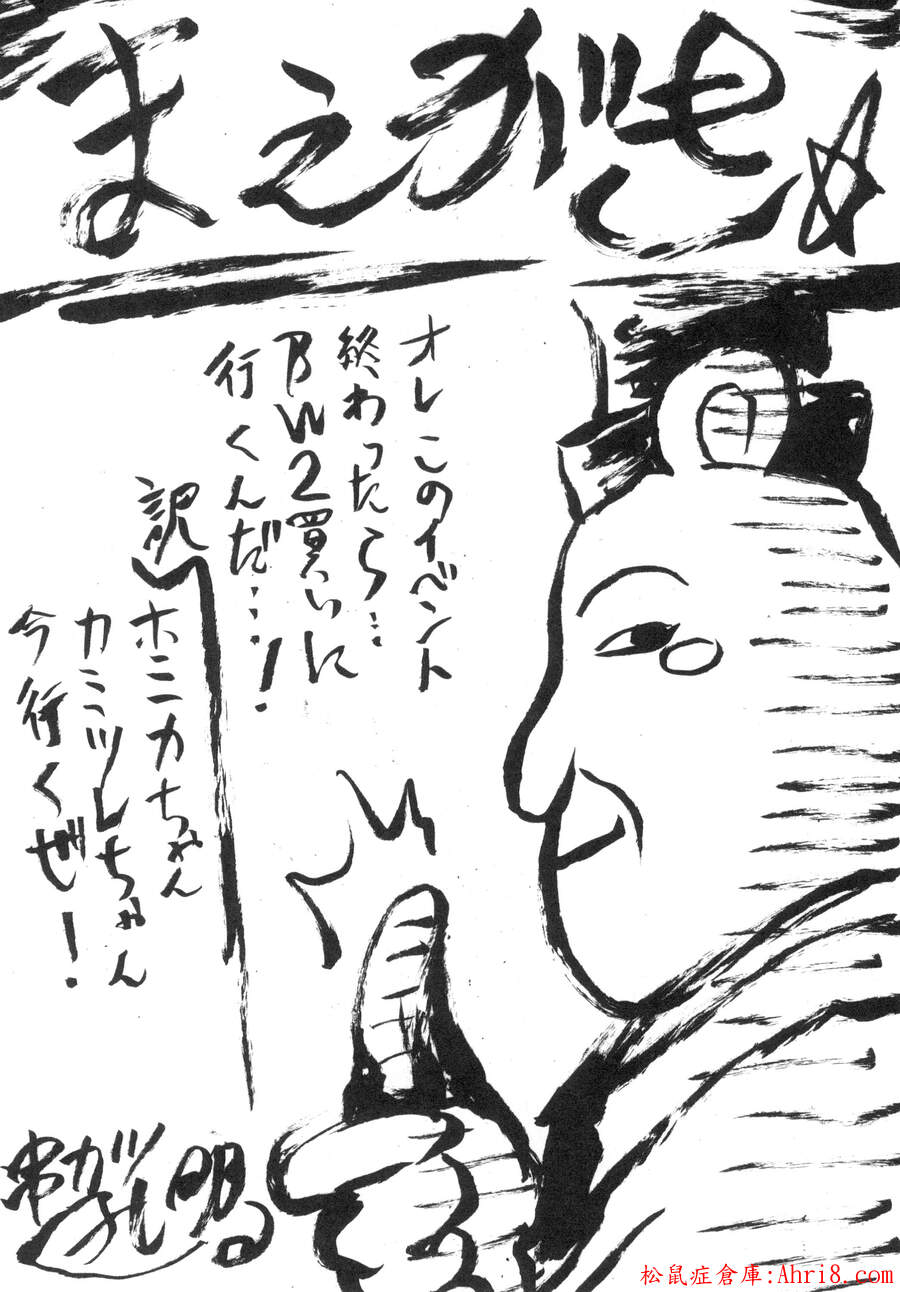 まえがき☆
オレこのイベント
終わったら…
BW2買いに
行くんだ…!
訳
ホミカちゃん
カミツレちゃん
今行くぜ!
串カツ
明
松鼠症倉庫:Ahri8.com